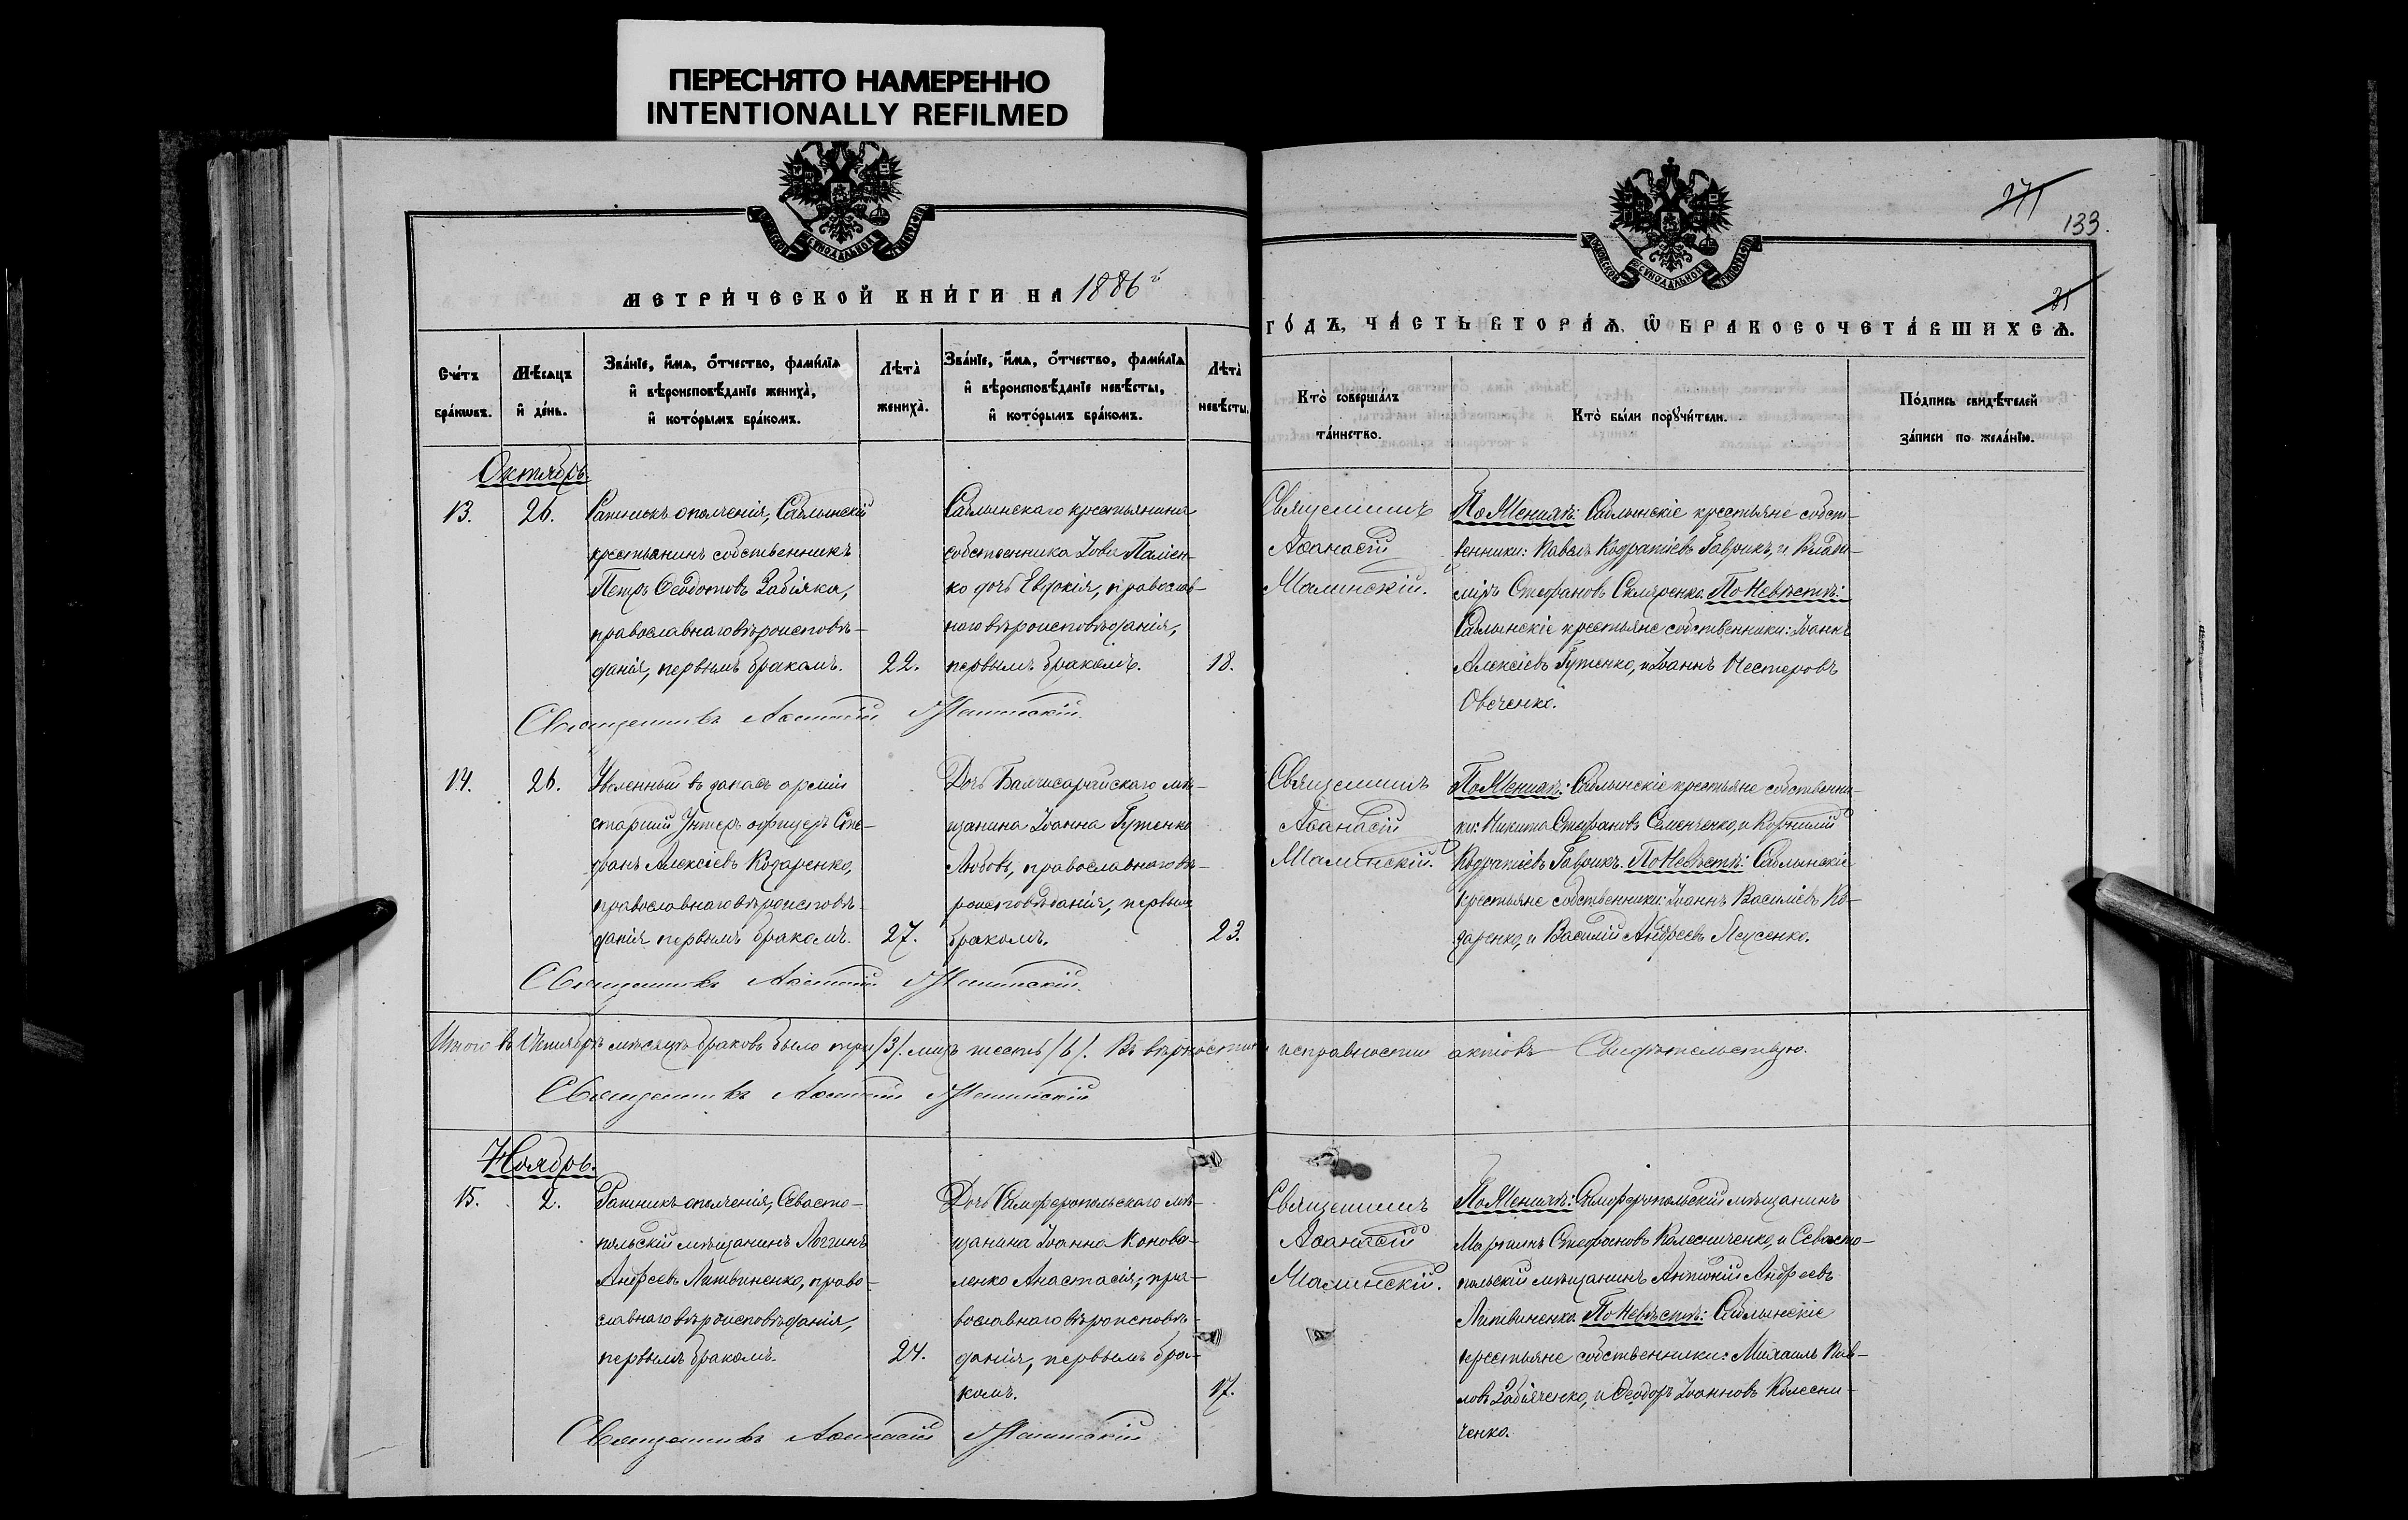 ПЕРЕСНЯТО НАМЕРЕННО
INTENTIONALLY REFILMED
271
133.
31
МЕТРИ́ЧЕСКОЙ КНИ́ГИ НА 1886й
ГО́ДЪ, ЧА́СТЬ ВТОРА́Ѧ, Ѿ БРАКОСОЧЕТА́ВШИХСѦ.
Сче́тъ
бра́кѡвъ.
Мѣ́сѧцъ
и҆ де́нь.
Зва́нїе, и҆́мѧ, ѻ҆́тчество, фами́лїѧ
и҆ вѣроисповѣ́данїе жениха̀,
и҆ кото́рымъ бра́комъ.
Лѣта̀
жениха̀.
Зва́нїе, и҆́мѧ, ѻ҆́тчество, фами́лїѧ
и҆ вѣроисповѣ́данїе невѣ́сты,
и҆ кото́рымъ бра́комъ.
Лѣта̀
невѣ́сты.
Кто̀ соверша́лъ
та́инство.
Кто̀ бы́ли порꙋчи́тели.
По́дпись свидѣ́телей
за́писи по жела́нїю.
Октябрь.
13.
26.
Ратникъ ополченія, Саблынскій
крестьянинъ собственникъ
Петръ Ѳеодотовъ Забіяка,
православнаго вѣроисповѣ-
данія, первымъ бракомъ.
22.
Саблынскаго крестьянина
собственника Іова Пален-
ко дочь Евдокія, православ-
наго вѣроисповѣданія,
первымъ бракомъ.
18.
Священникъ
Аѳанасій
Малинскій.
По Женихѣ: Саблынскіе крестьяне собст-
венники: Павелъ Кодратіевъ Гаврикъ, и Влади-
міръ Стефановъ Скляренко. По Невѣстѣ:
Саблынскіе крестьяне собственники: Іоаннъ
Алексіевъ Гутенко, и Іоаннъ Нестеровъ
Овченко.
Священникъ Аѳанасій Малинскій.
14.
26.
Уволенный въ запасъ арміи
старшій Унтеръ офицеръ Сте-
фанъ Алексіевъ Козаренко,
православнаго вѣроисповѣ-
данія первымъ бракомъ.
27.
Дочь Бахчисарайскаго мѣ-
щанина Іоанна Гутенко
Любовь, православнаго вѣ-
роисповѣданія, первымъ
бракомъ.
23.
Священникъ
Аѳанасій
Малинскій.
По Женихѣ: Саблынскіе крестьяне собственни-
ки: Никита Стефановъ Семенченко, и Корнилій
Кодратіевъ Гаврикъ. По Невѣстѣ: Саблынскіе
крестьяне собственники: Іоаннъ Василіевъ Ко-
заренко, и Василій Андреевъ Яценко.
Священникъ Аѳанасій Малинскій.
Итого въ Октябрѣ мѣсяцѣ браковъ было три /3/. лицъ шесть /6/. Въ вѣрности и исправности актовъ Свидѣтельствую.
Священникъ Аѳанасій Малинскій
Ноябрь.
15.
2.
Ратникъ ополченія, Севасто-
польскій мѣщанинъ Логгинъ
Андреевъ Литвиненко, право-
славнаго вѣроисповѣданія,
первымъ бракомъ.
24.
Дочь Симферопольскаго мѣ-
щанина Іоанна Конова-
ленко Анастасія, пра-
вославнаго вѣроисповѣ-
данія, первымъ бра-
комъ.
17.
Священникъ
Аѳанасій
Малинскій.
По Женихѣ: Симферопольскій мѣщанинъ
Мартинъ Стефановъ Колесниченко, и Севасто-
польскій мѣщанинъ Антоній Андреевъ
Литвиненко. По Невѣстѣ: Саблынскіе
крестьяне собственники: Михаилъ Пав-
ловъ Забіяченко, и Ѳеодоръ Іоанновъ Колесни-
ченко.
Священникъ Аѳанасій Малинскій